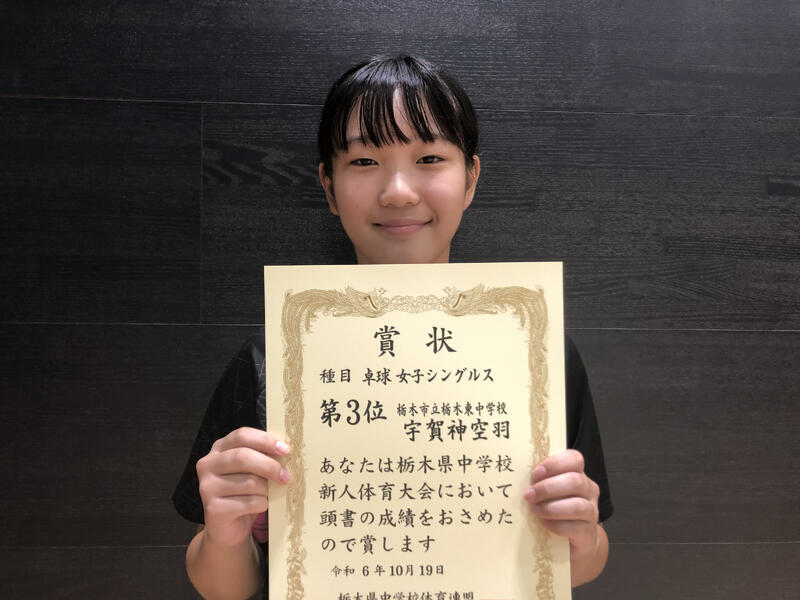 賞状
種目 卓球 女子シングルス
第3位 栃木市立栃木東中学校
宇賀神空羽
あなたは栃木県中学校
新人体育大会において
頭書の成績をおさめた
ので賞します
令和 6年10月19日
栃木県中学校体育連盟